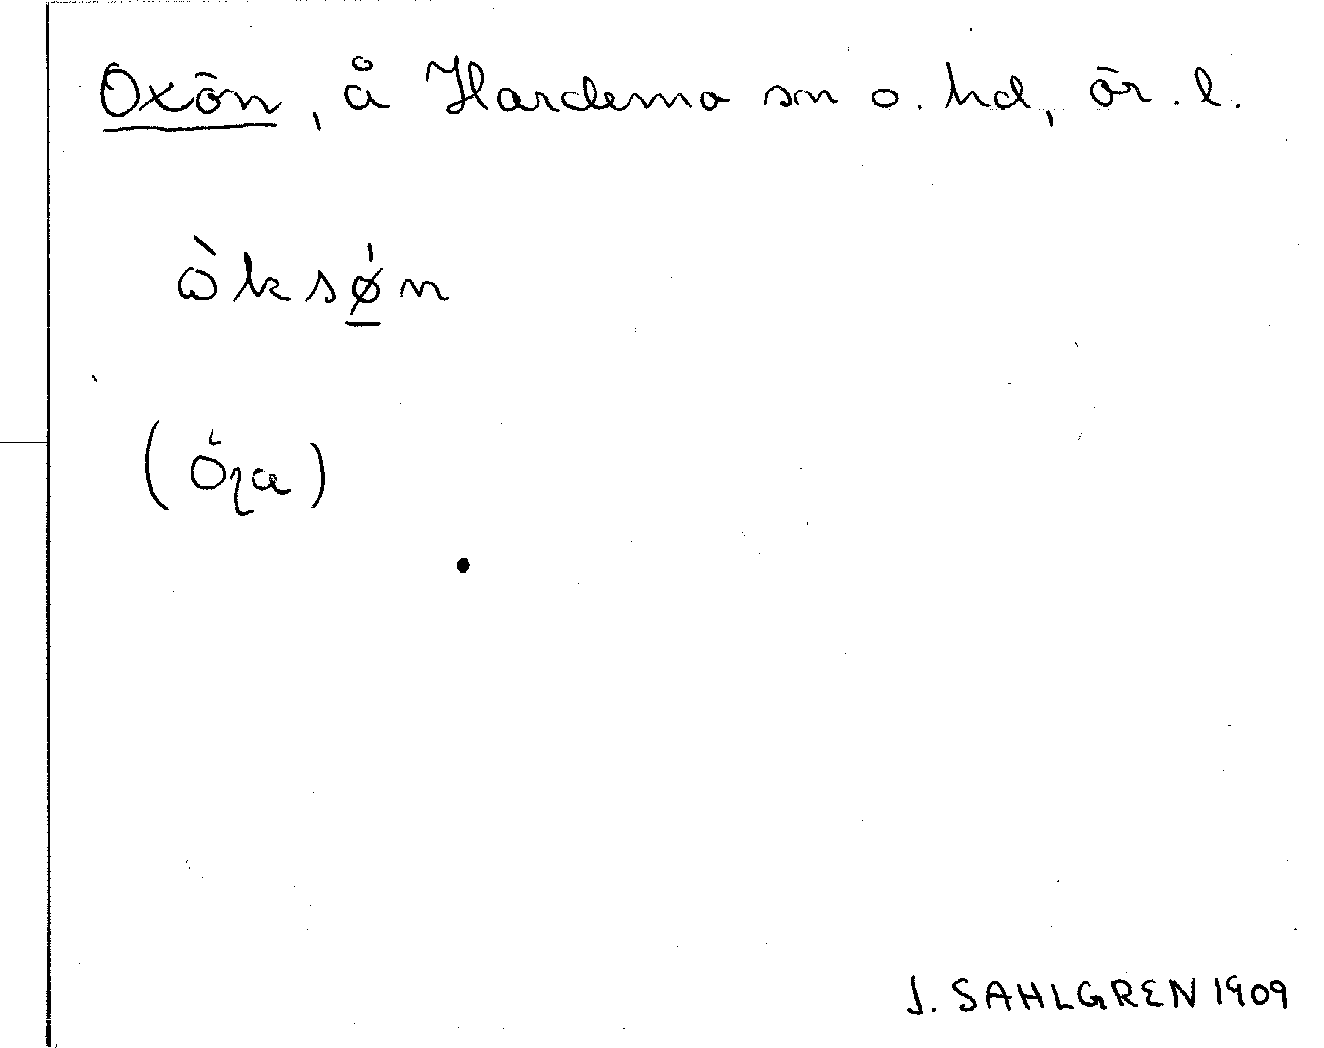 Oxön, å Hardemo sn o. hd, ör. l.
ὼksǿ̲n
J. SAHLGREN 1909